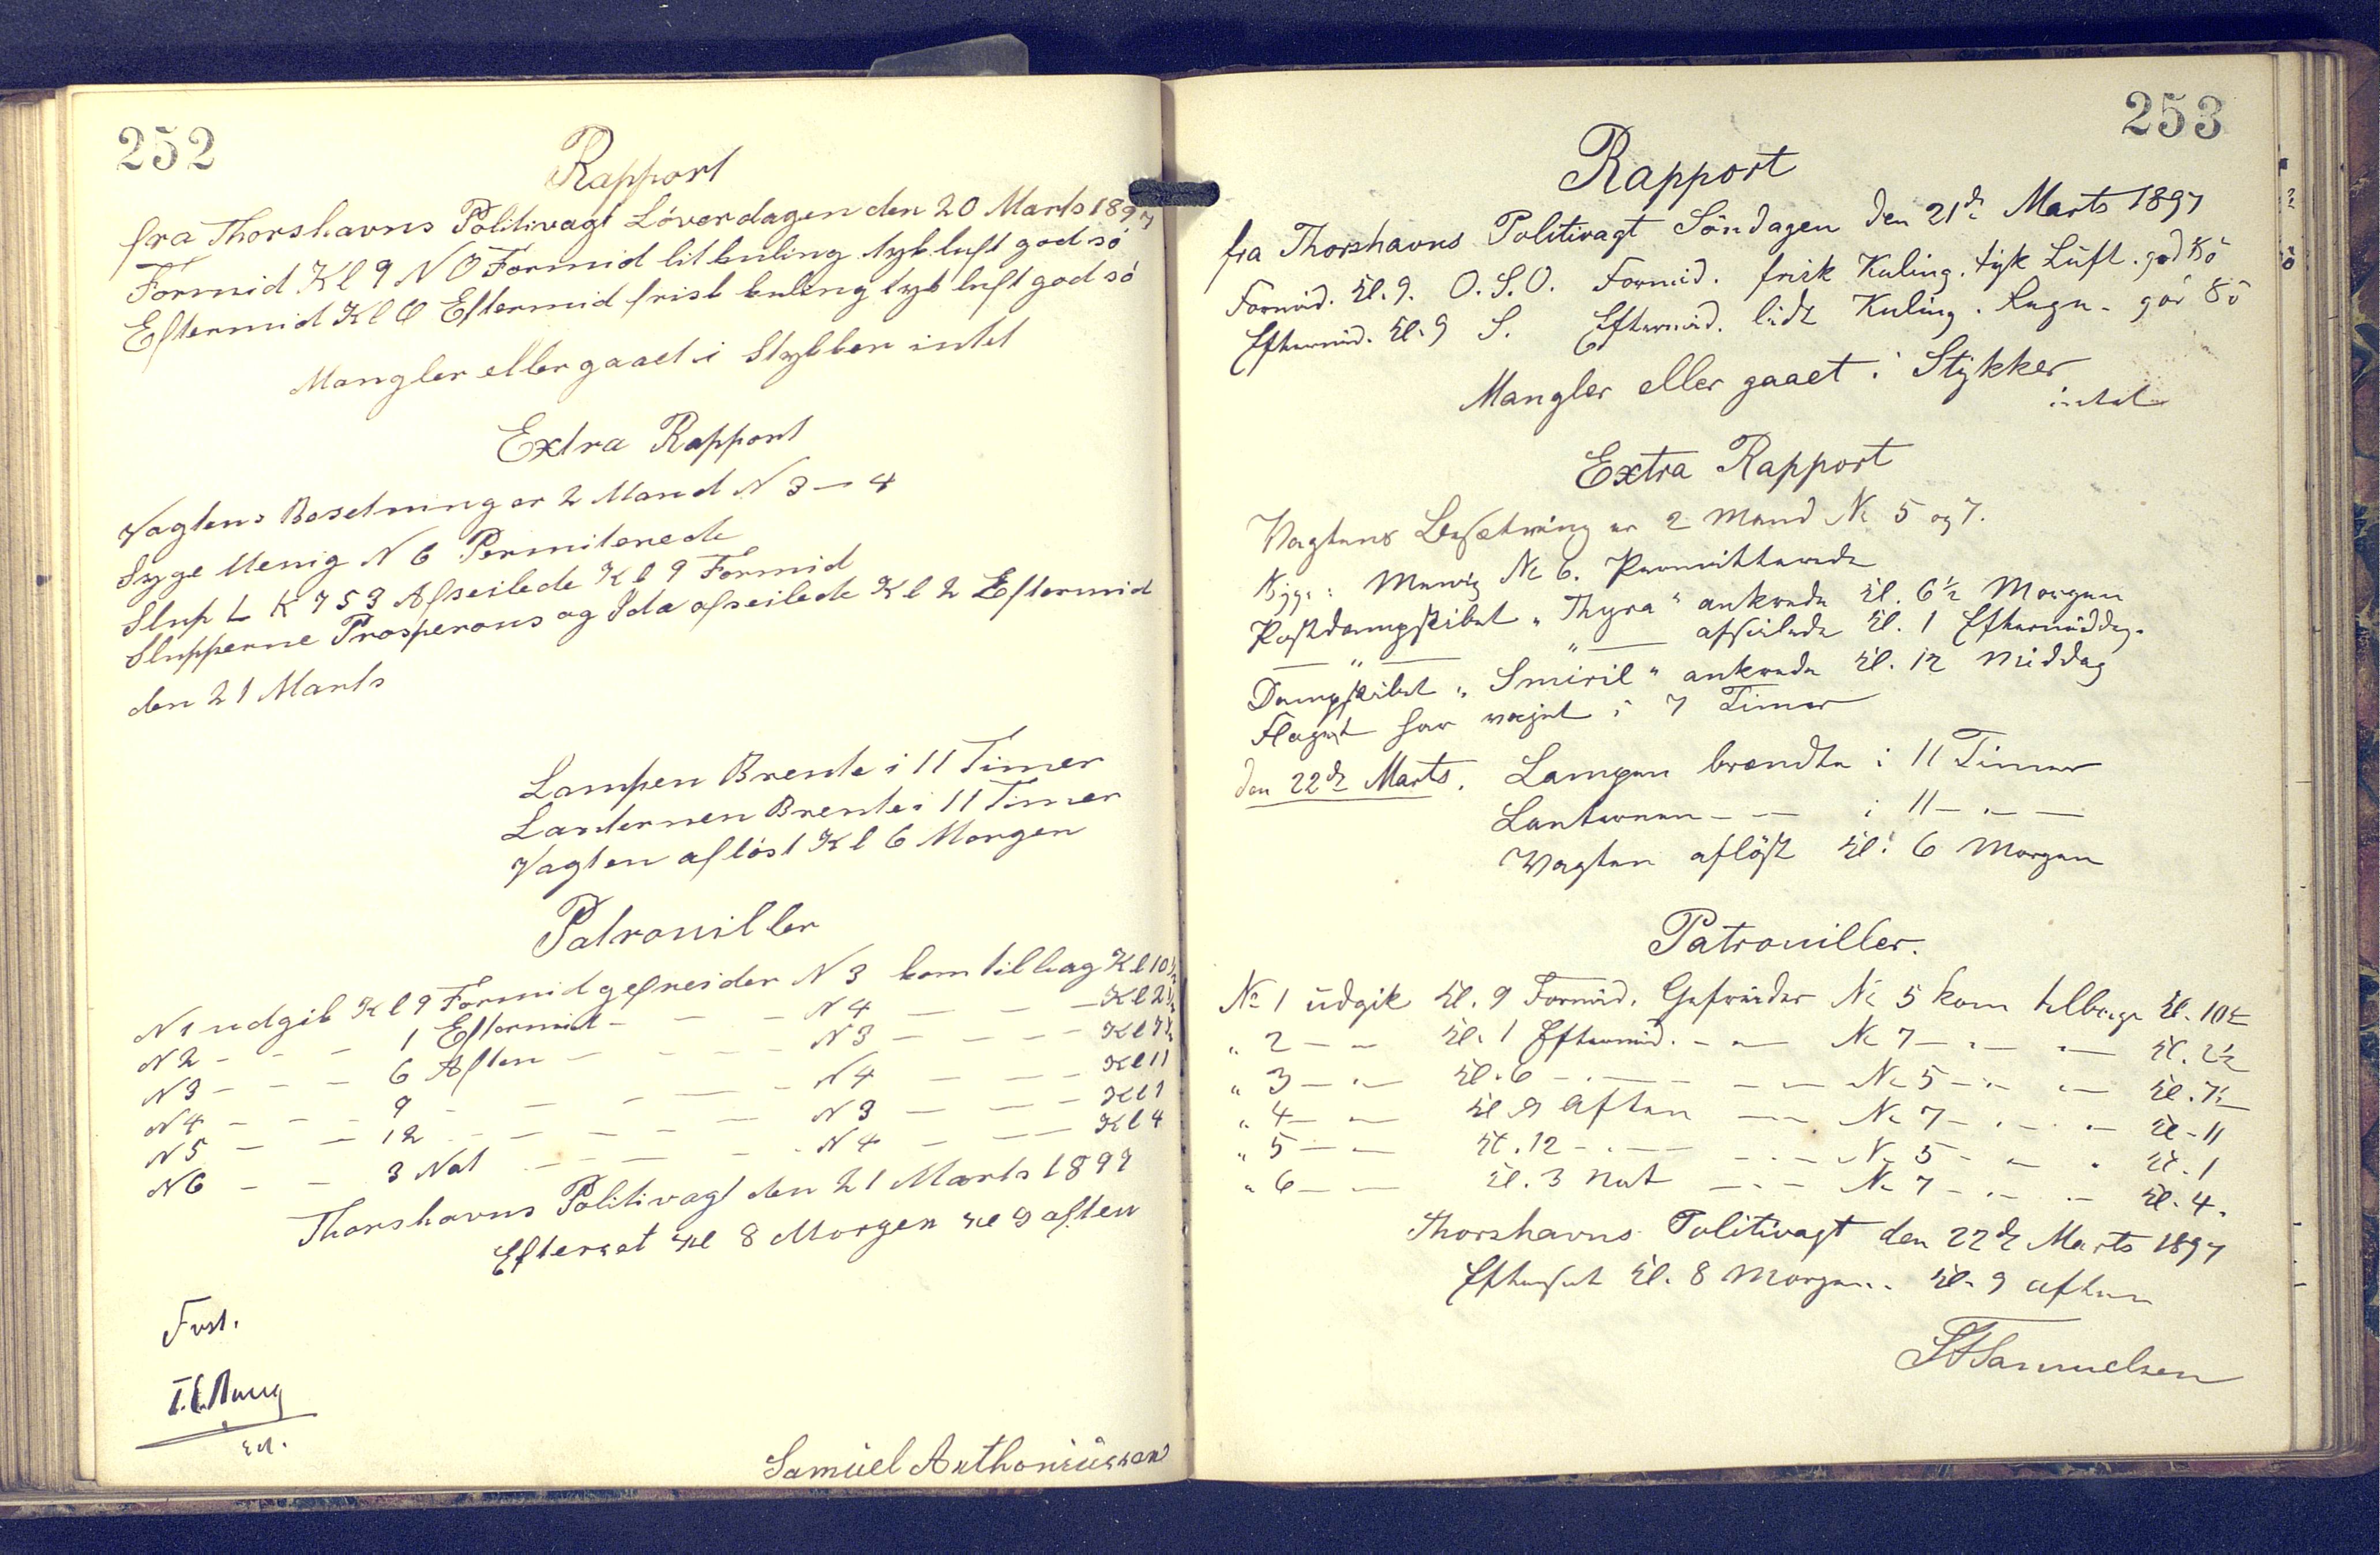 252
Rapport
fra Thorshavns Politivagt Löverdagen den 20 Marts 1897
Formid Kl 9 N O Formid lit kuling tyk luft god sö
Eftermid Kl 6 Eftermid frisk kuling tyk luft god sö
Mangler eller gaaet i Stykker intet
Extra Rapport
Vagtens Besetning er 2 Mand N 3 — 4
Syge Menig N 6 Permiterede
Slup L K 753 Afseilede Kl 9 Formid
Slupperne Prosperous og Ida afseilede Kl 2 Eftermid
den 21 Marts
Lampen Brente i 11 Timer
Lanternen Brente i 11 Timer
Vagten aflöst Kl 6 Morgen
Patrouiller
N 1 udgik Kl 9 Formid gefreider N 3 kom tilbag Kl 10 ½
N 2 - - - 1 Eftermit - - - - N 4 — - - Kl 2 ½
N 3 - - - 6 Aften - - - - N 3 - - - - Kl 7 ½
N 4 - - - 9 - - - - - N 4 — — — Kl 11
N 5 — — 12 - - - - - N 3 — - - - Kl 1
N 6 - - 3 Nat - - - - - N 4 - — — Kl 4
Thorshavns Politivagt den 21 Marts 1897
Efterset Kl 8 Morgen Kl 9 aften
Samüel Anthoniüssen
253
Rapport
fra Thorshavns Politivagt Söndagen den 21de Marts 1897
Formid. Kl. 9. O.S.O. Formid. frisk Kuling. tyk Luft. god Sö
Eftermid. Kl. 9 S. Eftermid. lidt Kuling. Regn. god Sö
Mangler eller gaaet i Stykker
intet
Extra Rapport
Vagtens Besætning er 2 Mand No 5 og 7.
Syge: Menig No 6. Permitterede
Postdampskibet „Thyra“ ankrede Kl. 6½ Morgen
— „ — „ — afseilede Kl. 1 Eftermiddag.
Dampskibet „Smiril“ ankrede Kl. 12 Middag
Flaget har vajet i 7 Timer
den 22de Marts. Lampen brændte i 11 Timer
Lanternen - - — i 11 — „ —
Vagten aflöst Kl. 6 Morgen
Patrouiller.
No 1 udgik Kl. 9 Formid. Gefreider No 5 kom tilbage Kl. 10½
„ 2 — — Kl. 1 Eftermid. - — No 7 — „ — — Kl. 2½
„ 3 — „ — Kl. 6 — „ — - — No 5 — „ — — Kl. 7½
„ 4 — — Kl. 9 Aften — — No 7 - „ - „ — Kl. 11
„ 5 — — Kl. 12 - „ — - „ - No 5 - — „ Kl. 1
„ 6 — — Kl. 3 Nat — „ - No 7 - „ - „ — Kl. 4.
Thorshavns Politivagt den 22de Marts 1897
Efterset Kl. 8 Morgen. Kl. 9 aften
Samuelsen